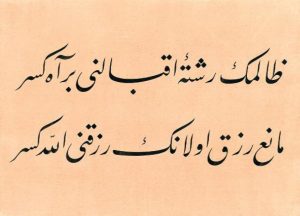 ظالمك رشتهٔ اقبالنی بر آه كسر
مانع رزق اولانك رزقنی الله كسر